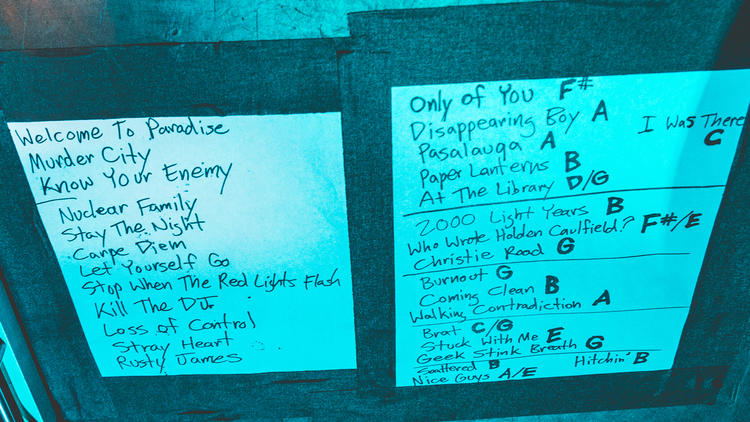 Welcome To Paradise
Murder City
Know Your Enemy
Nuclear Family
Stay The Night
Carpe Diem
Let Yourself Go
Stop When The Red Lights Flash
Kill The DJ
Loss of Control
Stray Heart
Rusty James
Only of You F#
Disappearing Boy A
I Was There C
Pasalauqa A
Paper Lanterns B
At The Library D/G
2000 Light Years B
Who Wrote Holden Caulfield? F#/E
Christie Road G
Burnout G
Coming Clean B
Walking Contradiction A
Brat C/G
Stuck With Me E
Geek Stink Breath G
Scattered B
Hitchin' B
Nice Guys A/E